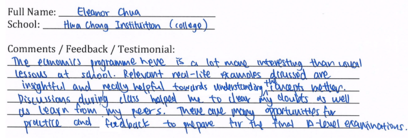 Full Name: Eleanor Chua
School: Hwa Chong Institution (college)
Comments / Feedback / Testimonial:
The economics programme here is a lot more interesting than usual
lessons at school. Relevant real-life examples discussed are
insightful and really helpful towards understanding the concepts better.
Discussions during class helped me to clear my doubts as well
as learn from my peers. There are many opportunities for
practice and feedback to prepare for the final A level examinations.